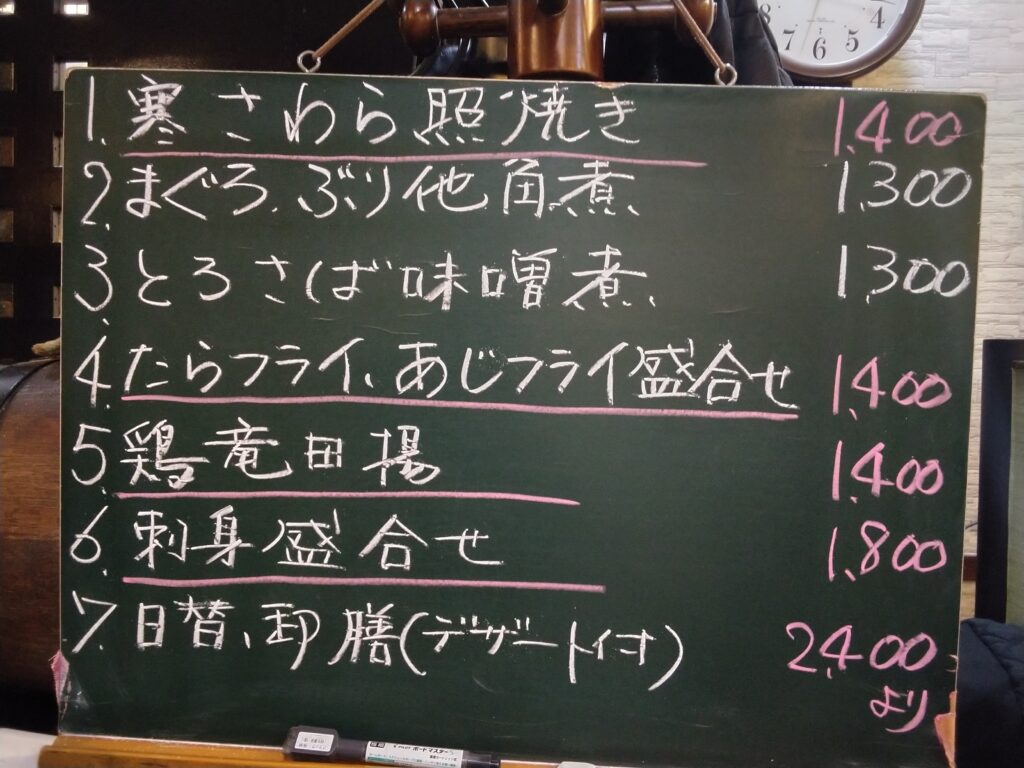 1. 寒さわら照焼き 1,400
2. まぐろ、ぶり他角煮 1,300
3. とろさば味噌煮 1,300
4. たらフライ、あじフライ盛合せ 1,400
5. 鶏竜田揚 1,400
6. 刺身盛合せ 1,800
7. 日替、御膳(デザート付) 2,400
より
8 7 6 5 4
ボードマスター